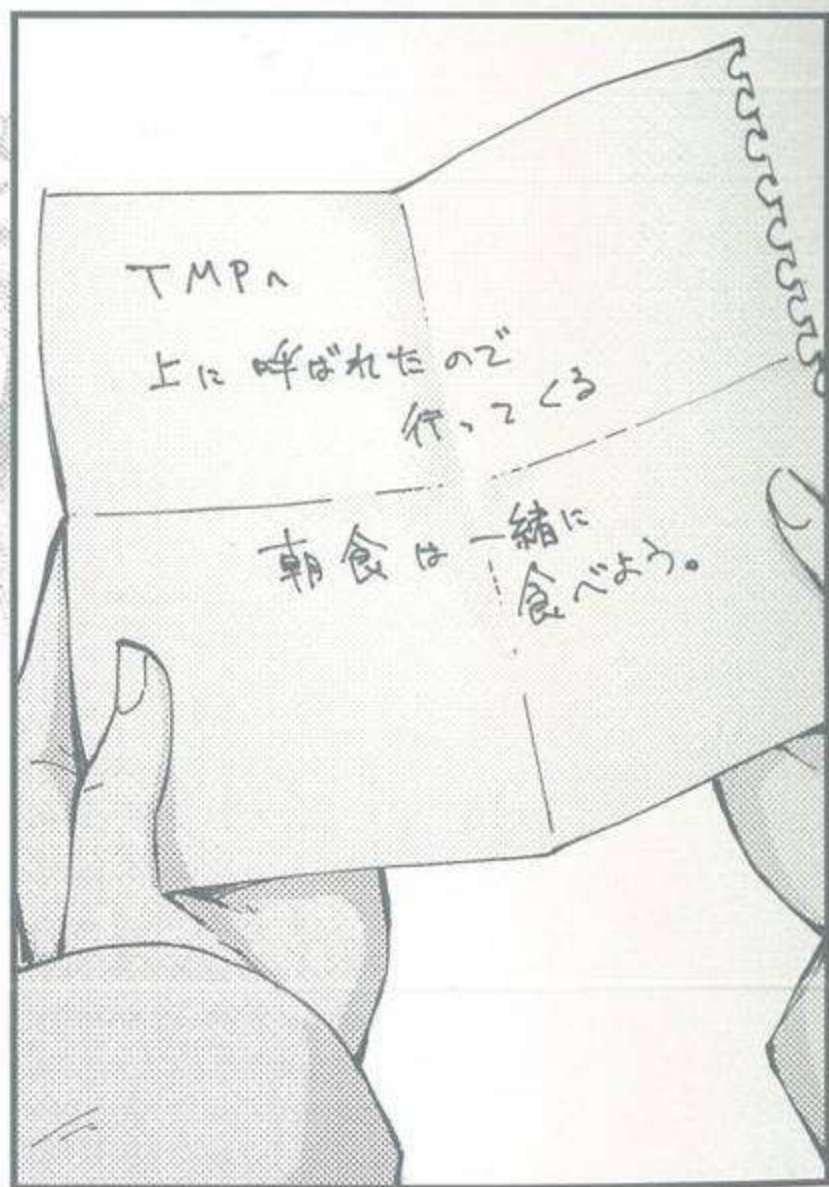 TMPへ
上に呼ばれたので
行ってくる
朝食は一緒に
食べよう。